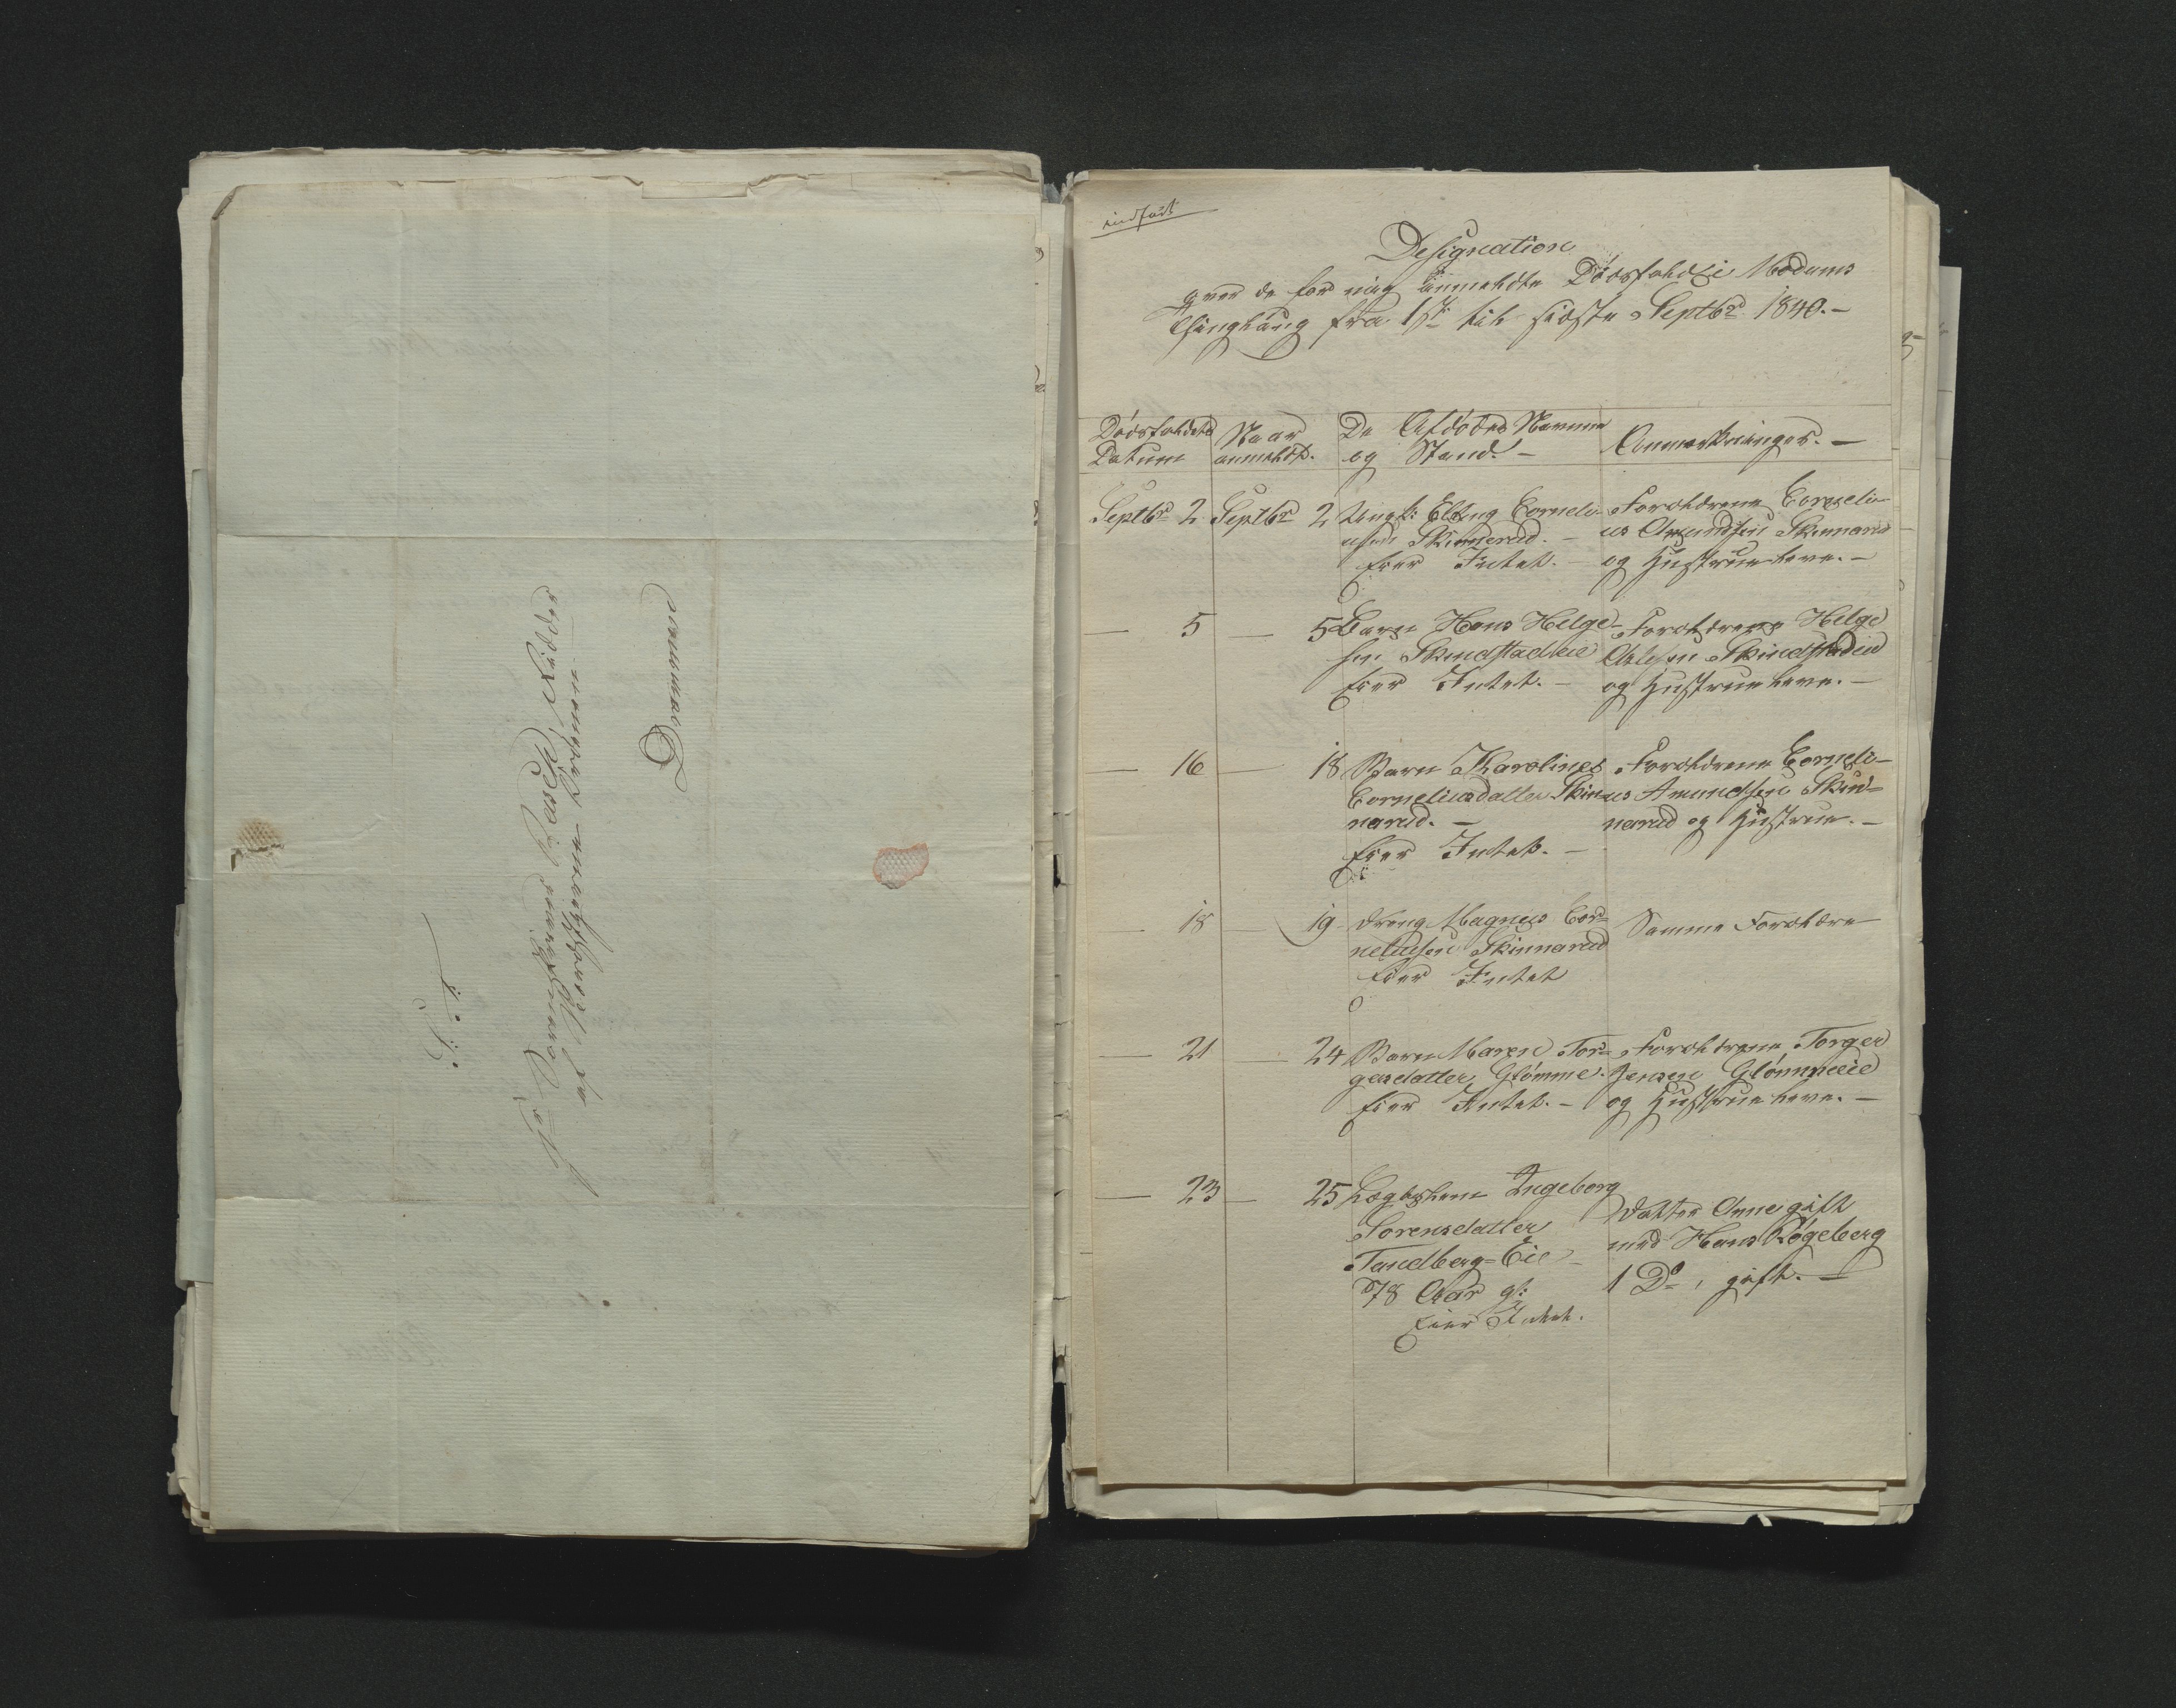 S. T.
Hr Sorenskriver Rasch, Ridder
af Nordstjerne-Ordenen
Drammen
indført
Designation
over de for mig anmeldte Dødsfald i Modums
Thinglaug fra 1ste til sidste Septbr 1840.-
Dødsfaldets
Datum
Naar
anmeldt.
De Afdødes Navne
og Stand. -
Anmærkninger. -
Septbr 2 Septbr 2 Ungk: Elling Corneli-
usen Skinnerud. -
Eier Intet. -
Forældrene Corneli-
us Amundsen Skinnarud
og Hustrue leve. -
— 5 — 5 Barn Hans Helge-
sen Skindstadeie
Eier Intet. -
Forældrene Helge
Olesen Skindstadeie
og Hustrue leve. -
— 16 — 18 Barn Karoline
Corneliusdatter Skin-
narud. -
Eier Intet. -
Forældrene Corneli-
us Amundsen Skin-
narud og Hustrue. -
— 18 — 19 Dreng Magnus Cor-
neliusen Skinnarud
Eier Intet
Samme Forældre
— 21 — 24 Barn Maren Tor-
gersdatter Glömme.
Eier Intet. -
Forældrene Torger
Jensen Glömmeeie
og Hustrue leve. -
— 23 — 25 Lægdslem Ingeborg
Sorensdatter
Tandberg-Eie -
78 Aar gl:
Eier Intet.
Datter Anne gift
med Hans Røgeberg
1 Do, gift. -